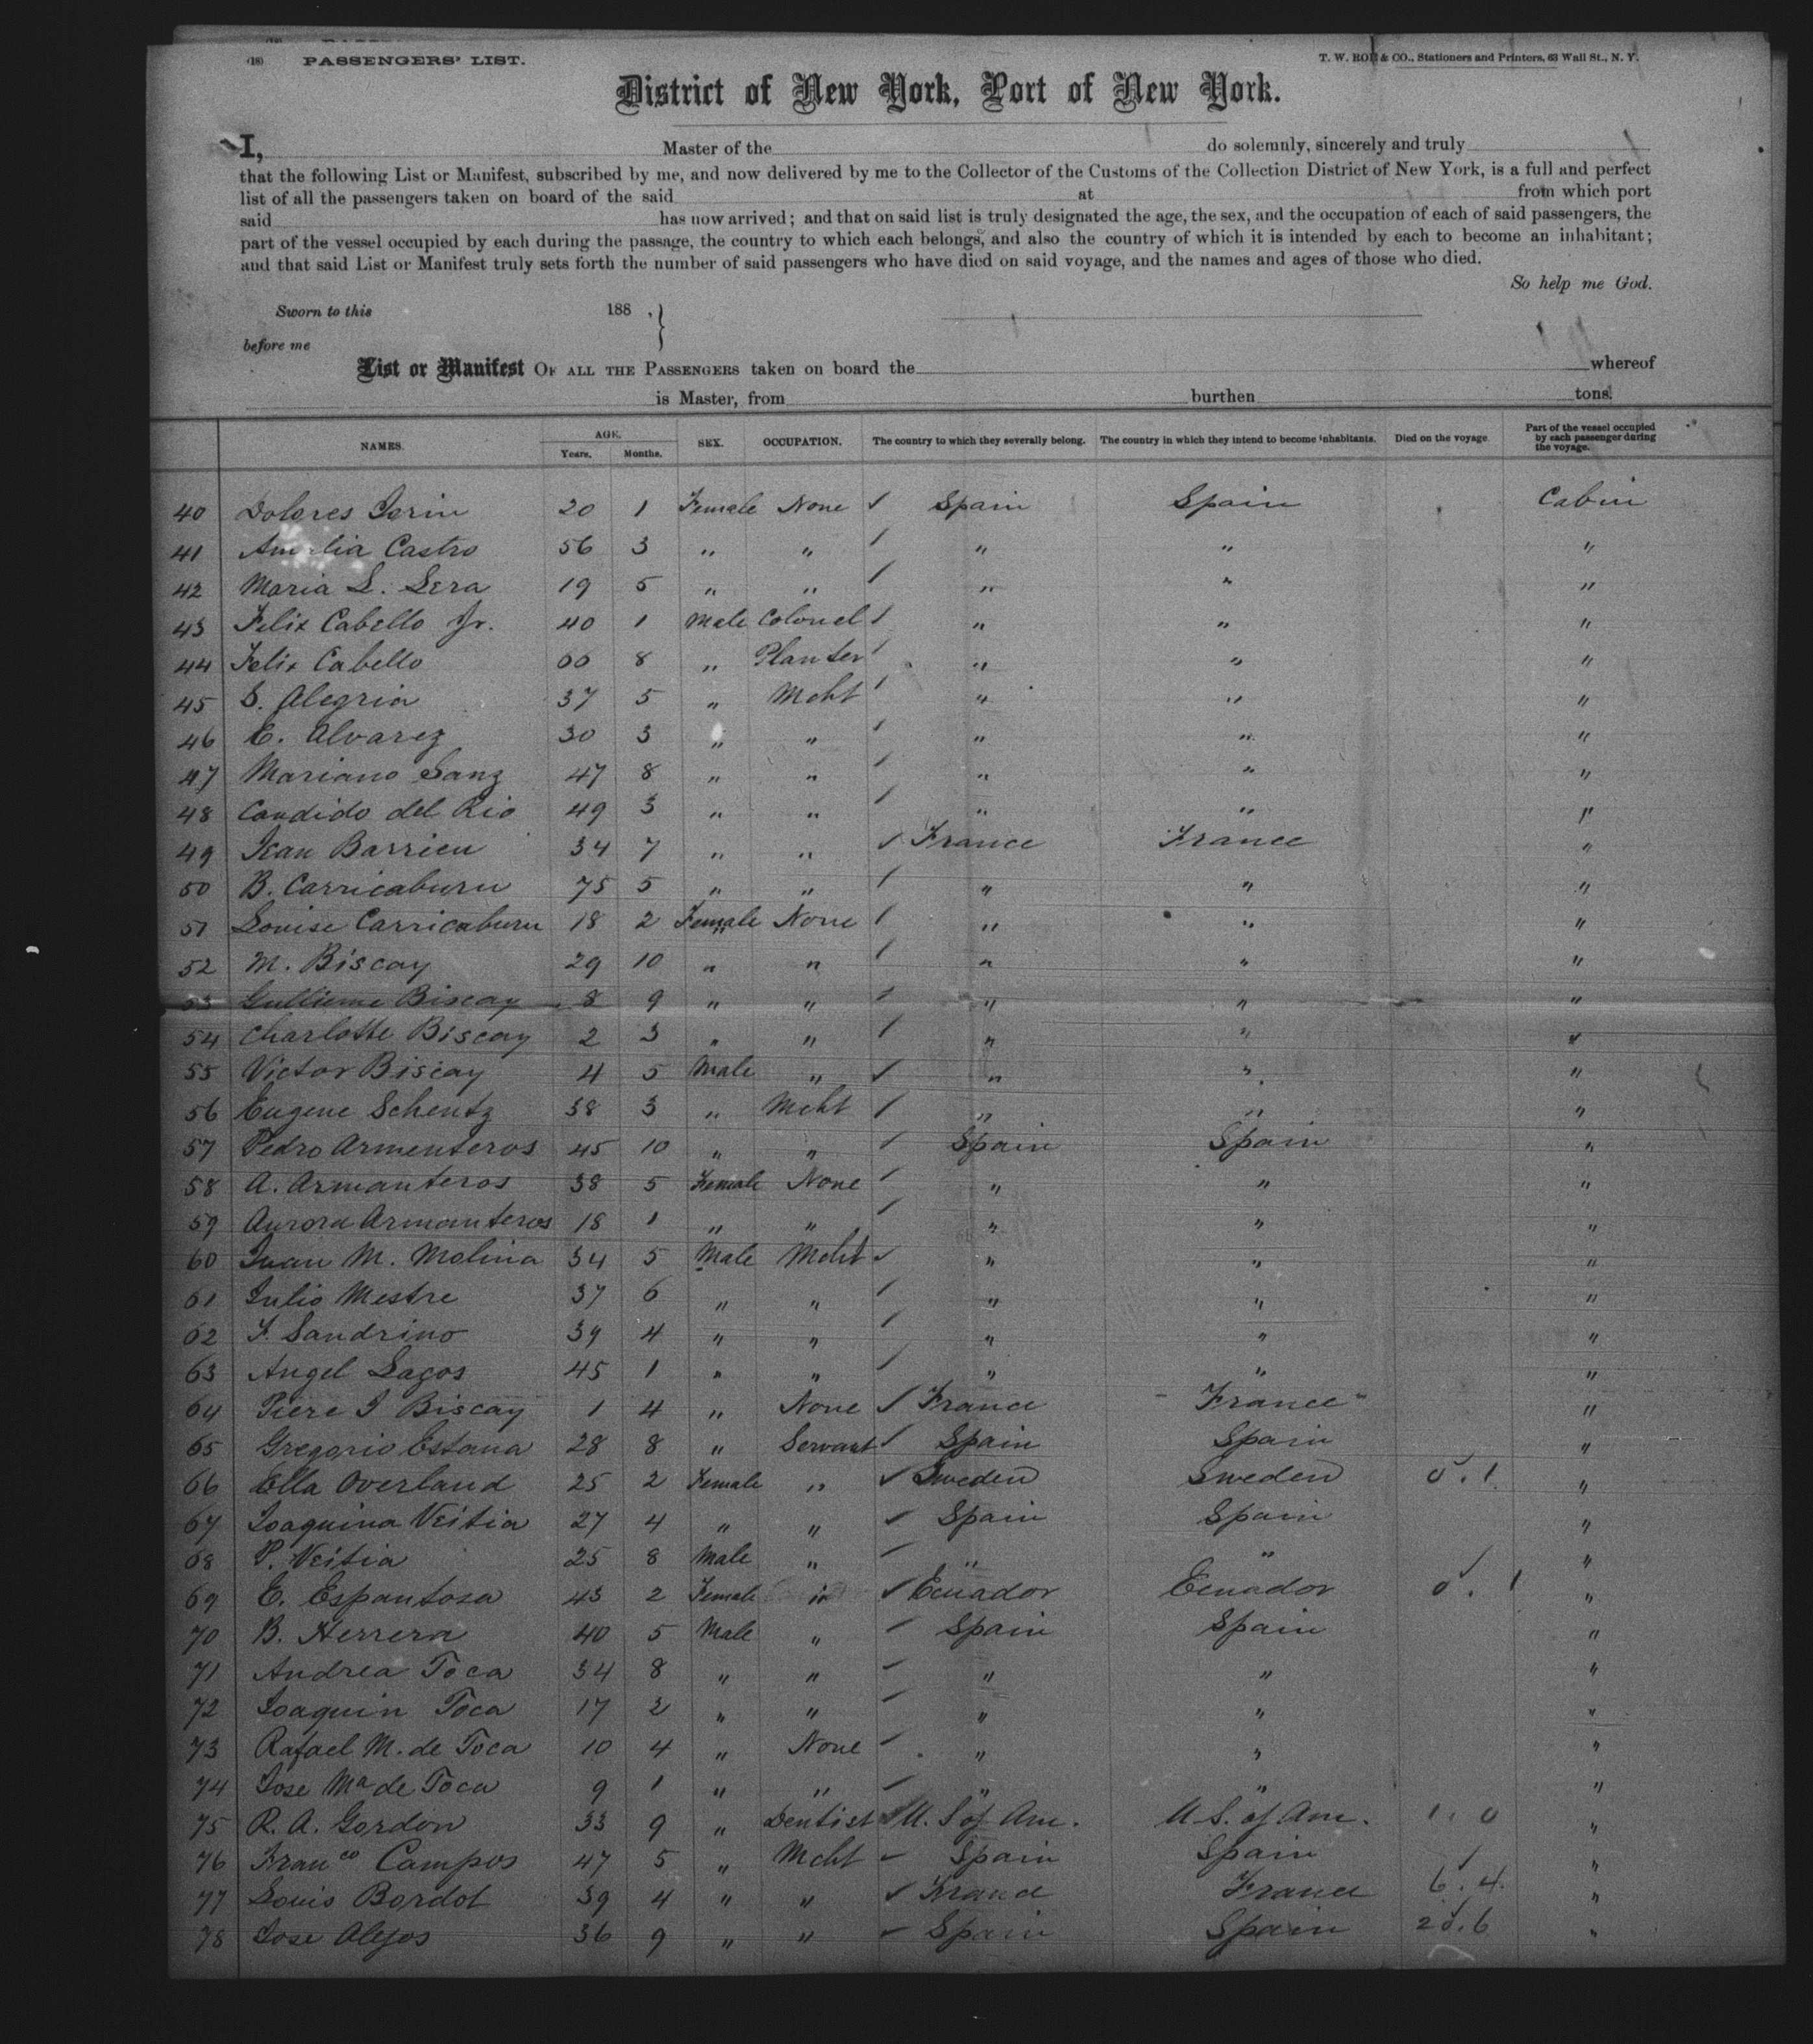 (18) PASSENGERS' LIST. T. W. ROE & CO., Stationers and Printers, 63 Wall St., N. Y.
District of New York, Port of New York.
I, Master of the do solemnly, sincerely and truly
that the following List or Manifest, subscribed by me, and now delivered by me to the Collector of the Customs of the Collection District of New York, is a full and perfect
list of all the passengers taken on board of the said at from which port
said has now arrived; and that on said list is truly designated the age, the sex, and the occupation of each of said passengers, the
part of the vessel occupied by each during the passage, the country to which each belongs, and also the country of which it is intended by each to become an inhabitant;
and that said List or Manifest truly sets forth the number of said passengers who have died on said voyage, and the names and ages of those who died.
So help me God.
Sworn to this 188 , }
before me
List or Manifest OF ALL THE PASSENGERS taken on board the whereof
is Master, from burthen tons.
NAMES. AGE. Years. Months. SEX. OCCUPATION. The country to which they severally belong. The country in which they intend to become inhabitants. Died on the voyage. Part of the vessel occupied by each passenger during the voyage.
40 Dolores 20 1 Female None / Spain Spain Cabin
41 Castro 56 3 " " / " " "
42 Maria L. Lera 19 5 " " / " " "
43 Felix Cabello Jr. 40 1 Male Colonel / " " "
44 Felix Cabello 8 " Planter / " " "
45 S. Alegria 37 5 " Mcht / " " "
46 E. Alvarez 30 3 " " / " " "
47 Mariano Sanz 47 8 " " / " " "
48 Candido del Rio 49 3 " " / " " "
49 Jean Barrieu 34 7 " " / France France "
50 B. Carricaburu 75 5 " " / " " "
51 Louise Carricaburu 18 2 Female None / " " "
52 M. Biscay 29 10 " " / " " "
53 Gullieme Biscay 8 9 " " / " " "
54 Charlotte Biscay 2 3 " " / " " "
55 Victor Biscay 4 5 Male " / " " "
56 Eugene Schentz 38 3 " Mcht / " " "
57 Pedro Armenteros 45 10 " " / Spain Spain "
58 A. Armanteros 38 5 Female None / " " "
59 Aurora Armanteros 18 1 " " / " " "
60 Juan M. Molina 34 5 Male Mcht / " " "
61 Julio Mestre 37 6 " " / " " "
62 F. Sandrino 39 4 " " / " " "
63 Angel Lagos 45 1 " " / " " "
64 Piere J Biscay 1 4 " None / France France "
65 Gregorio Estana 28 8 " Servant / Spain Spain "
66 Ella Overland 25 2 Female " / Sweden Sweden 0.1 "
67 Joaquina Veitia 27 4 " " / Spain Spain "
68 P. Veitia 25 8 Male " / " " "
69 E. Espantosa 43 2 Female " / Ecuador Ecuador 0.1 "
70 B. Herrera 40 5 Male " / Spain Spain "
71 Andrea Toca 34 8 " " / " " "
72 Joaquin Toca 17 2 " " / " " "
73 Rafael M. de Toca 10 4 " None / " " "
74 Jose Ma de Toca 9 1 " " / " " "
75 R. A. Gordon 33 9 " Dentist / U. S of Am. U S. of Am. 1.0 "
76 Franco Campos 47 5 " Mcht / Spain Spain "
77 Louis Bordot 39 4 " " / France France 6.4. "
78 Jose Alejos 36 9 " " / Spain Spain 20.6 "